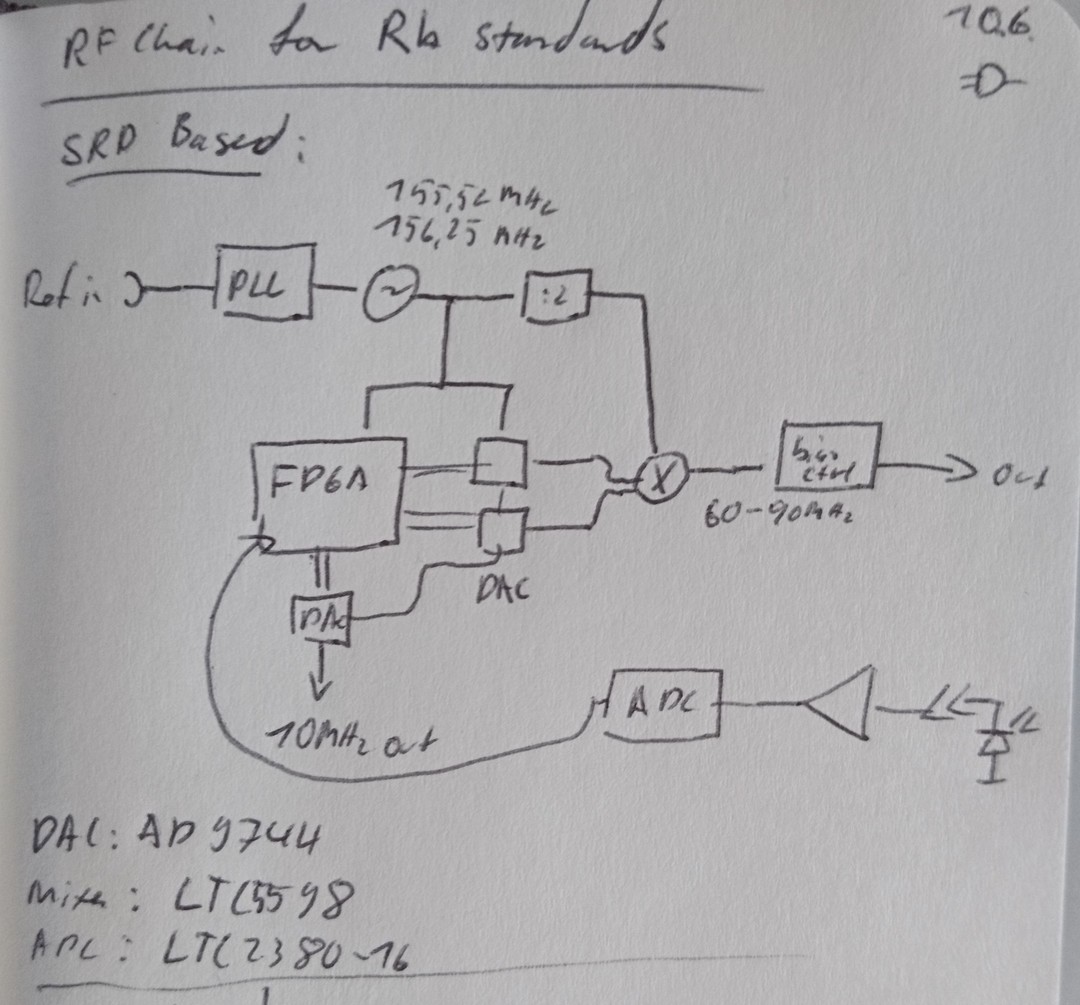 RF Chain for Rb standards
10.6.
SRD Based:
155,52 MHz
156,25 MHz
Ref in
PLL
~
:2
FPGA
X
bias
ctrl
Out
60-90MHz
DAC
DAC
10MHz out
ADC
DAC: AD9744
Mixer: LTC5598
ADC: LTC2380-16